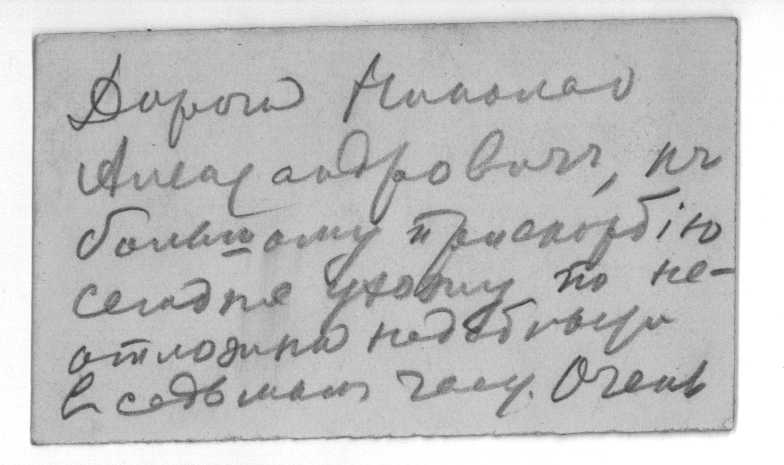 Дорогой Николай
Александрович, къ
большому прискорбію
сегодня ухожу по не-
отложной надобности
въ седьмомъ часу. Очень